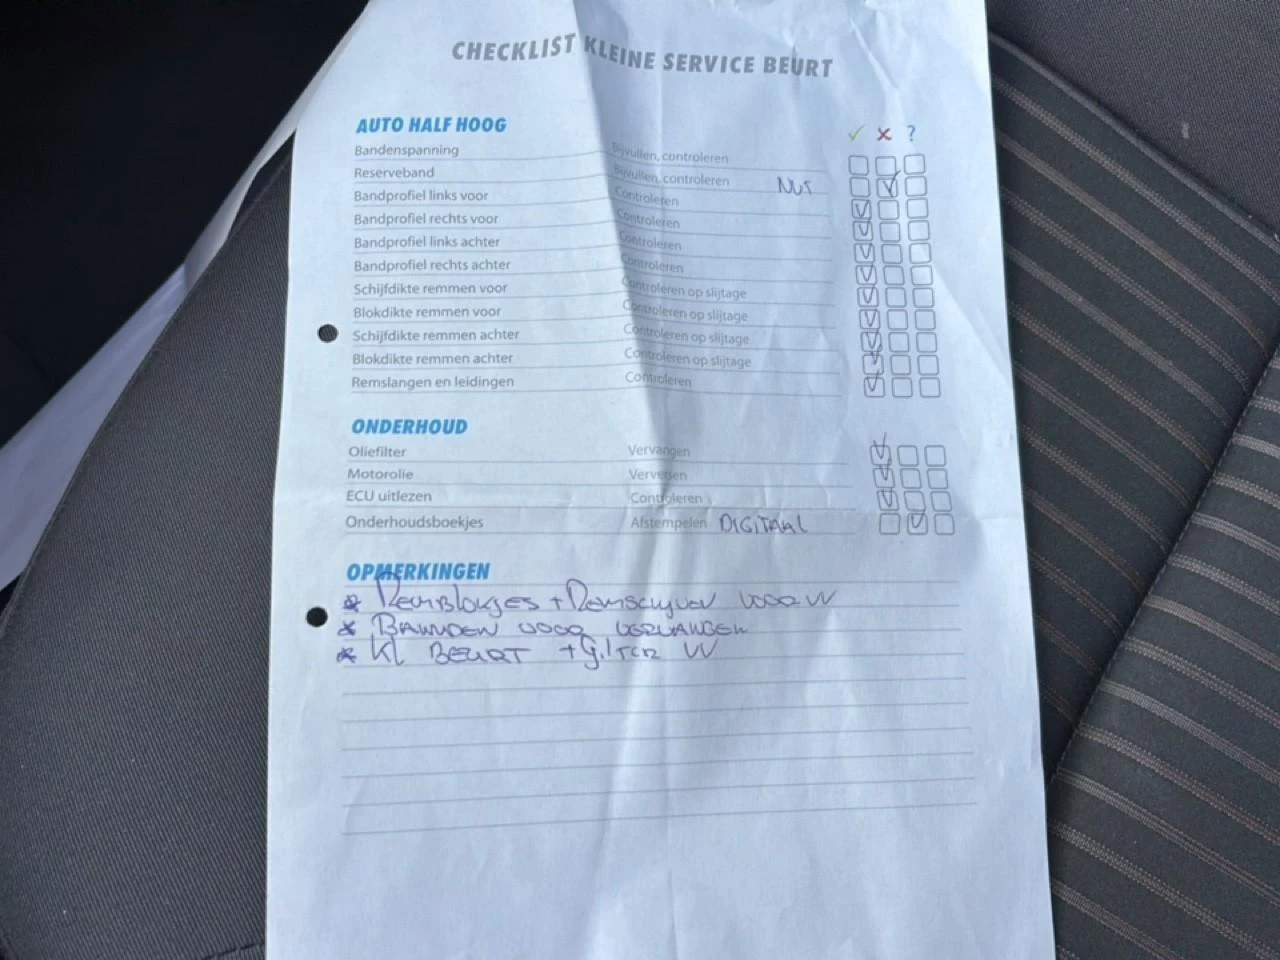 CHECKLIST KLEINE SERVICE BEURT
AUTO HALF HOOG ✓ ✗ ?
Bandenspanning Bijvullen, controleren
Reserveband Bijvullen, controleren
Bandprofiel links voor Controleren
Bandprofiel rechts voor Controleren
Bandprofiel links achter Controleren
Bandprofiel rechts achter Controleren
Schijfdikte remmen voor Controleren op slijtage
Blokdikte remmen voor Controleren op slijtage
Schijfdikte remmen achter Controleren op slijtage
Blokdikte remmen achter Controleren op slijtage
Remslangen en leidingen Controleren
ONDERHOUD
Oliefilter Vervangen
Motorolie Verversen
ECU uitlezen Controleren
Onderhoudsboekjes Afstempelen DIGITAAL
OPMERKINGEN
* Remblokjes + Remschijven voor VV
* BANNDEN VOOR VERVANGEN
* Kl BEURT + filter VV